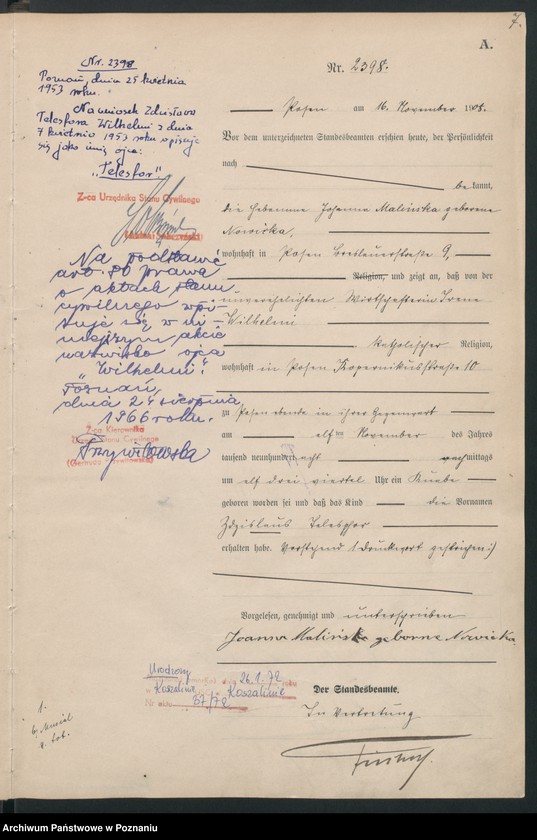 7.
A.
Nr. 2398.
Nr. 2398
Poznań, dnia 25 kwietnia
1953 roku.
Na wniosek Zdzisława
Telesfora Wilhelmi z dnia
7 kwietnia 1953 roku opisuje
się jako imię ojca:
"Telesfor".
Z-ca Urzędnika Stanu Cywilnego
Na podstawie
art. 50 prawa
o aktach stanu
cywilnego wpi-
suje się w ni-
niejszym akcie
nazwisko ojca
"Wilhelmi".
Poznań,
dnia 24 sierpnia
1966 roku.
Z-ca Kierownika
Urzędu Stanu Cywilnego
Posen am 16. November 1908.
Vor dem unterzeichneten Standesbeamten erschien heute, der Persönlichkeit
nach
bekannt,
die Hebamme Johanna Malińska geborene
Nowicka,
wohnhaft in Posen Breslauerstraße 9,
Religion, und zeigt an, daß von der
unverehelichten Wirtschafterin Irene
Wilhelmi
katholischer Religion,
wohnhaft in Posen Kopernikusstraße 10
zu Posen ebenda in ihrer Gegenwart
am elften November des Jahres
tausend neunhundert acht nachmittags
um elf drei viertel Uhr ein Knabe
geboren worden sei und daß das Kind die Vornamen
Zdzislaus Telesphor
erhalten habe. Vorstehend 1 Druckwort gestrichen.
Vorgelesen, genehmigt und unterschrieben
Joanna Malińska geborne Nowicka
Der Standesbeamte.
In Vertretung
26.1.72 roku
Koszalin Koszalinie
Nr aktu 37/72
Archiwum Państwowe w Poznaniu